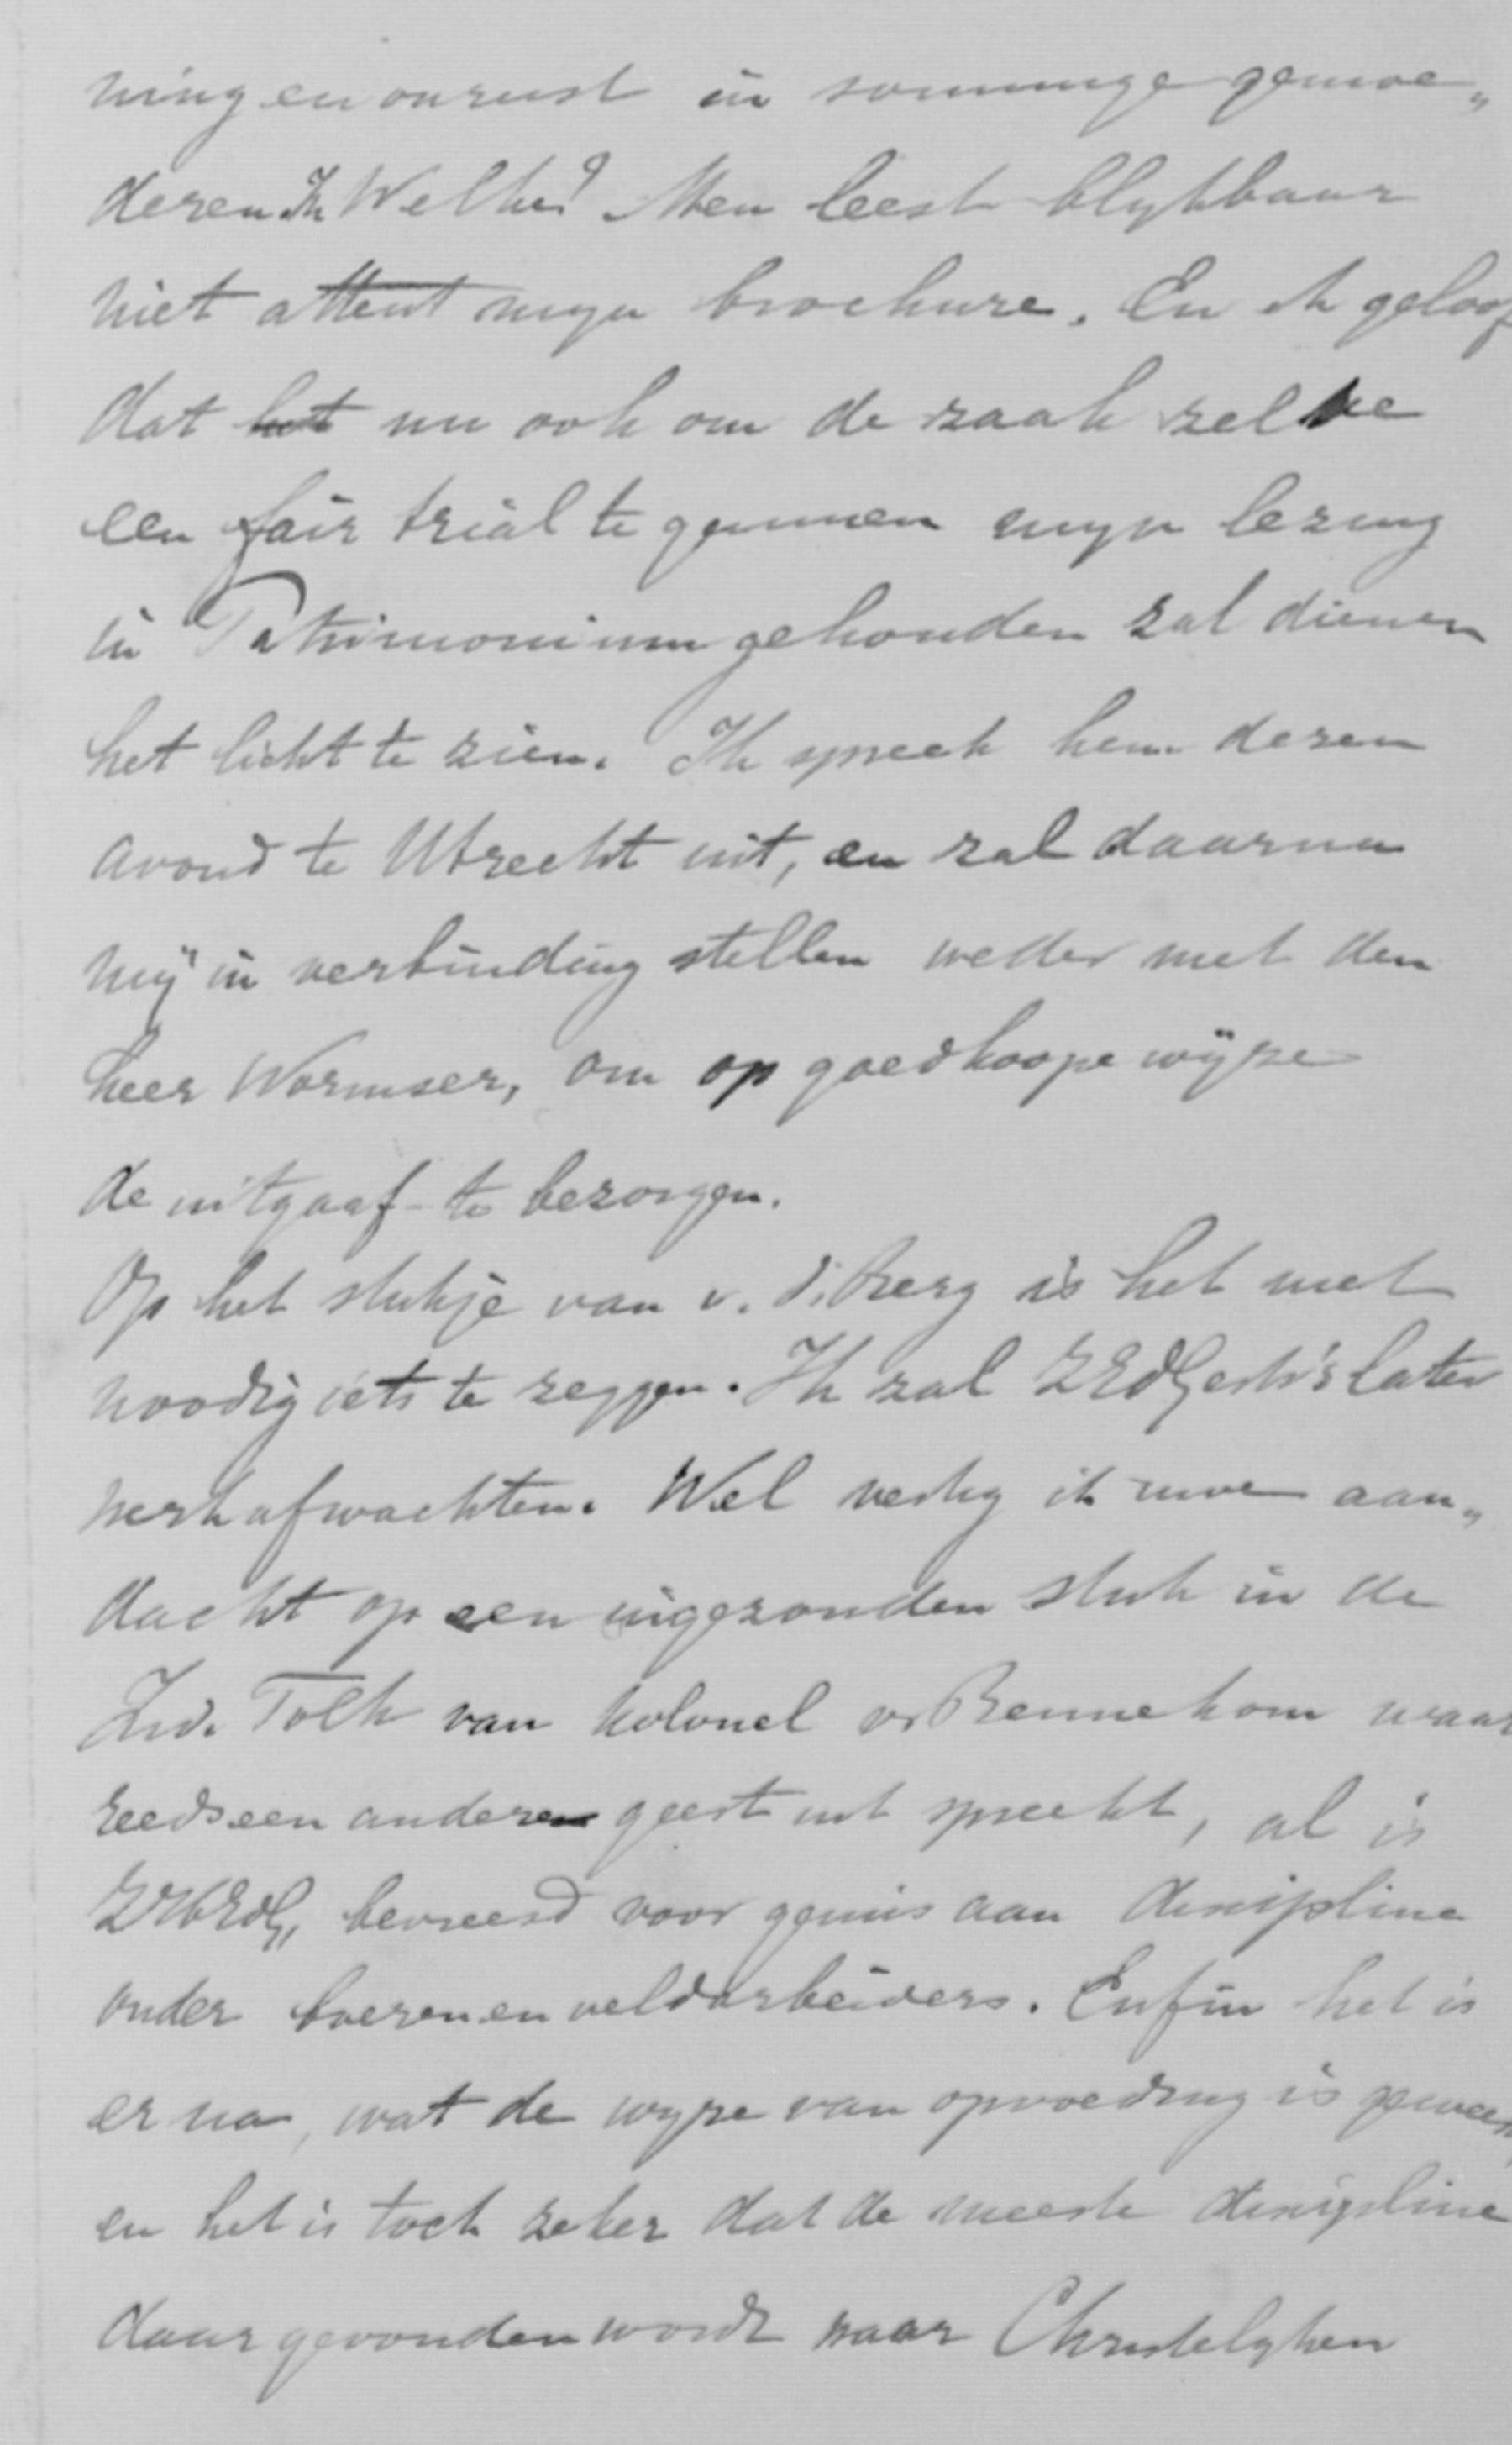 ning en onrust in sommige gemoe„
deren. Ik Welke? Men leest blykbaar
niet attent myn brochure. En ik geloof
dat het nu ook om de zaak zelve
een fair trial te gunnen myn lezing
in Patrimonium gehouden zal dienen
het licht te zien. Ik spreek hem dezen
avond te Utrecht uit, en zal daarna
mij in verbinding stellen weder met den
heer Wormser, om op goedkoope wijze
de uitgaaf te bezorgen.
Op het stukje van v. d. Berg is het niet
noodig iets te zeggen. Ik zal ZEdGestr's later
werk afwachten. Wel vestig ik uwe aan„
dacht op een ingezonden stuk in de
Zuid. Tolk van kolonel v Bennekom waar
reeds een andere geest uit spreekt, al is
ZHEdG, bevreesd voor gemis aan discipline
onder boeren en veldarbeiders. Enfin het is
er na, wat de wyze van opvoeding is geweest
en het is toch zeker dat de meeste discipline
daar gevonden wordt waar Christelyken